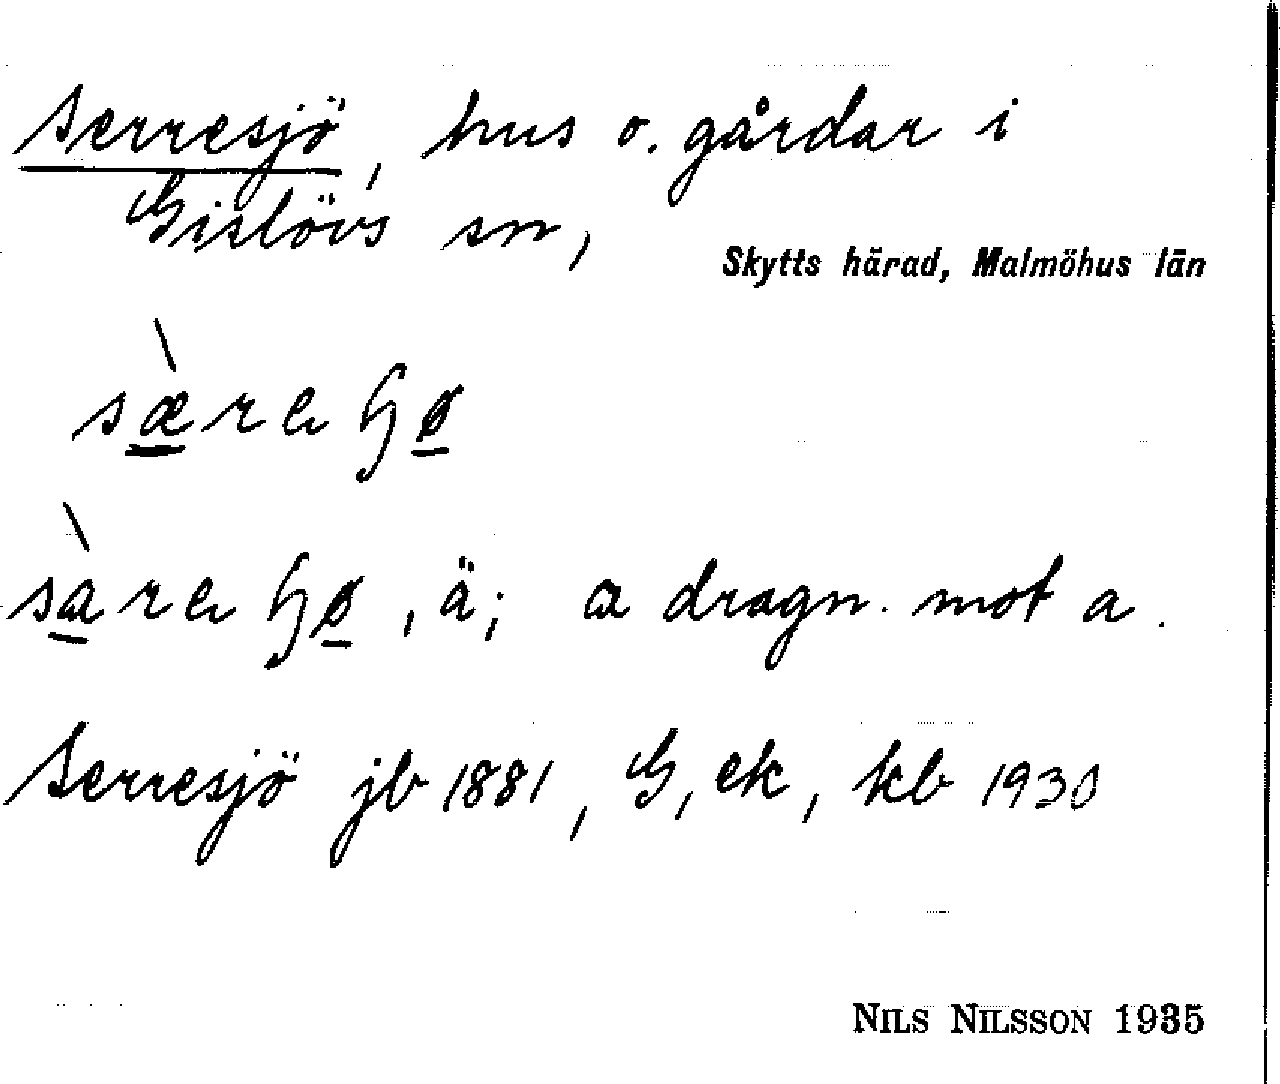 Serresjö, hus o. gårdar i
Gislövs sn,
Skytts härad, Malmöhus län
sæ̀re ɧø
sàre ɧø, ä; a dragn. mot a.
Serresjö jb 1881, G, ek, kb 1930
NILS NILSSON 1935